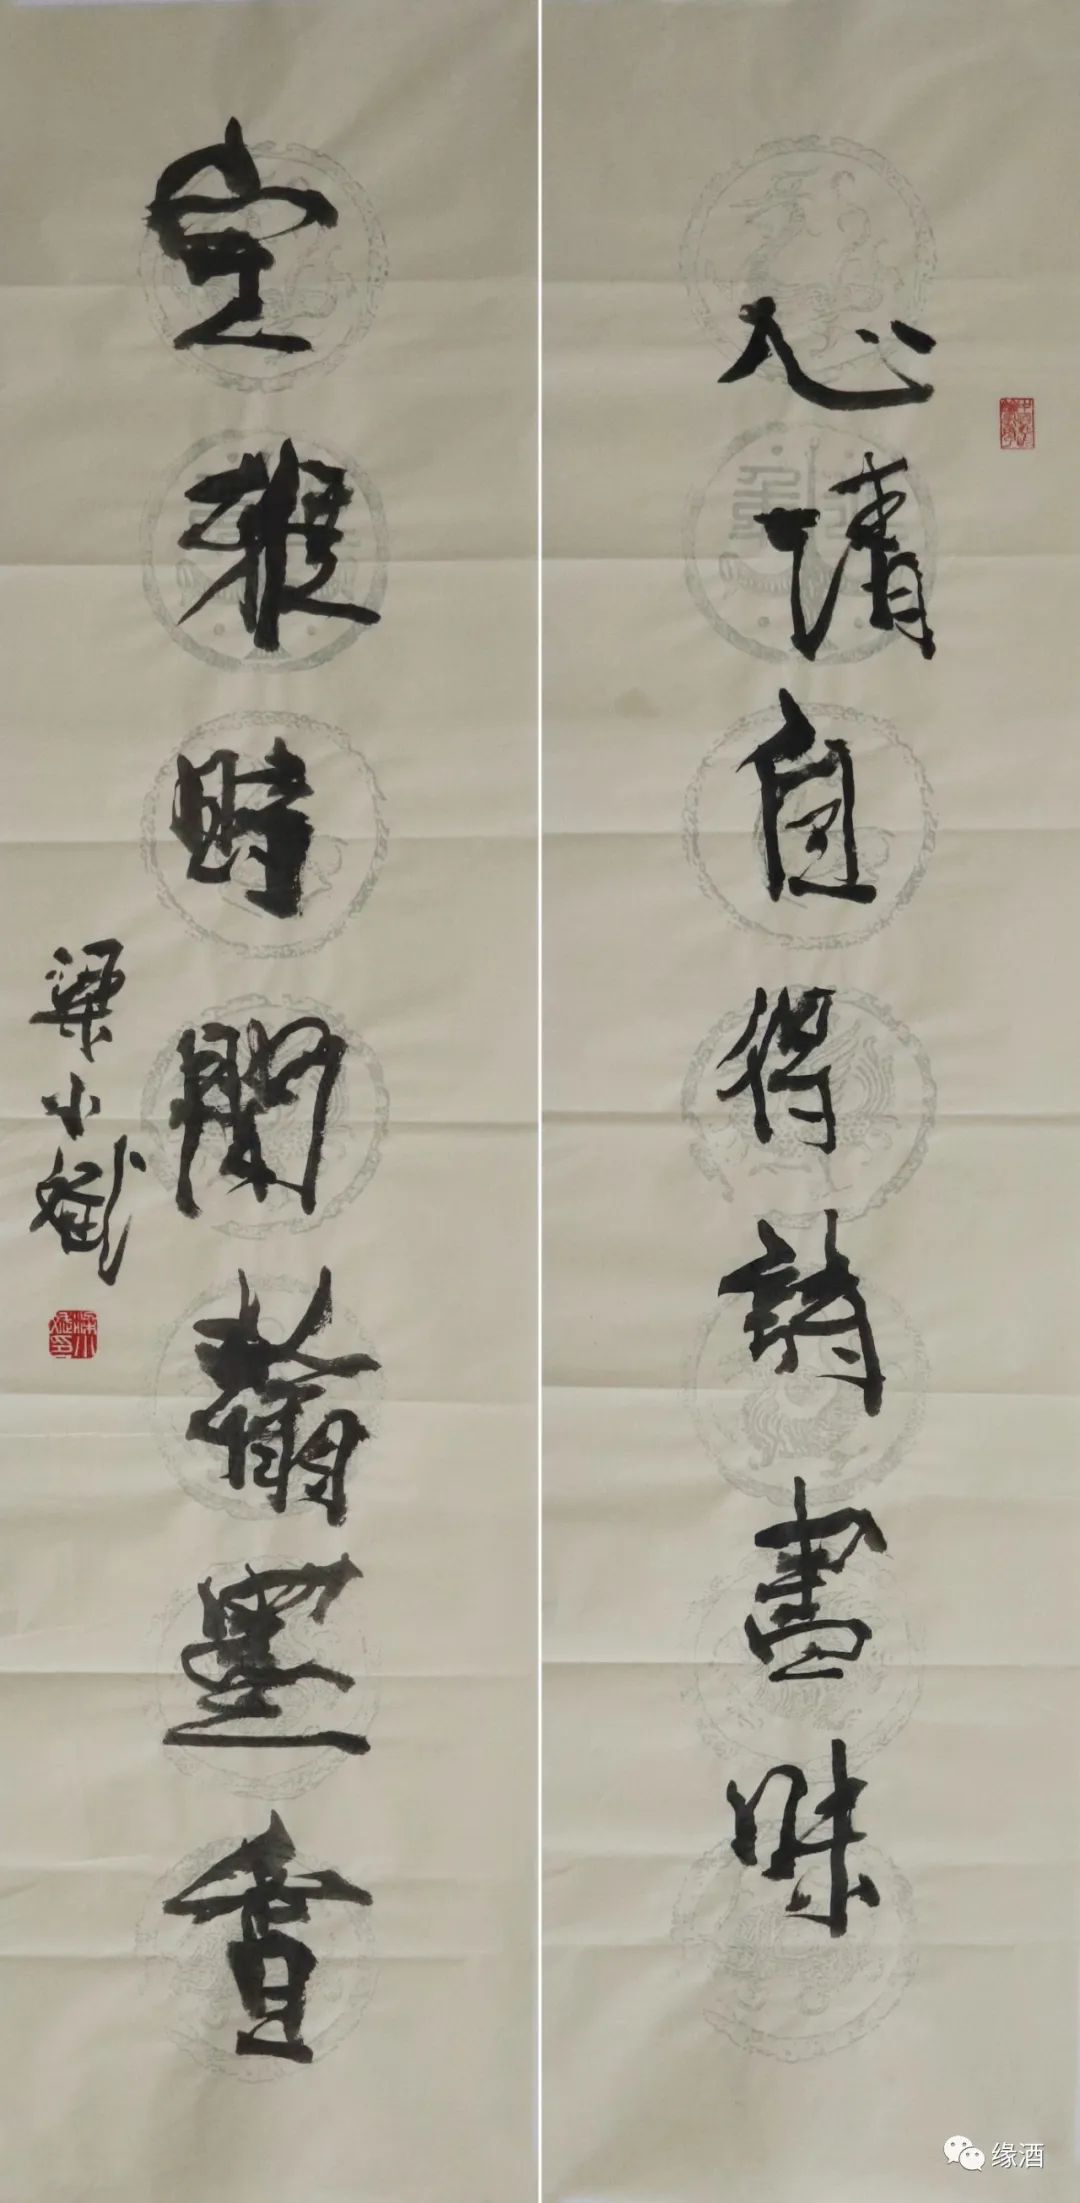 心清自得詩書味
室雅時聞翰墨香
梁小斌
缘酒